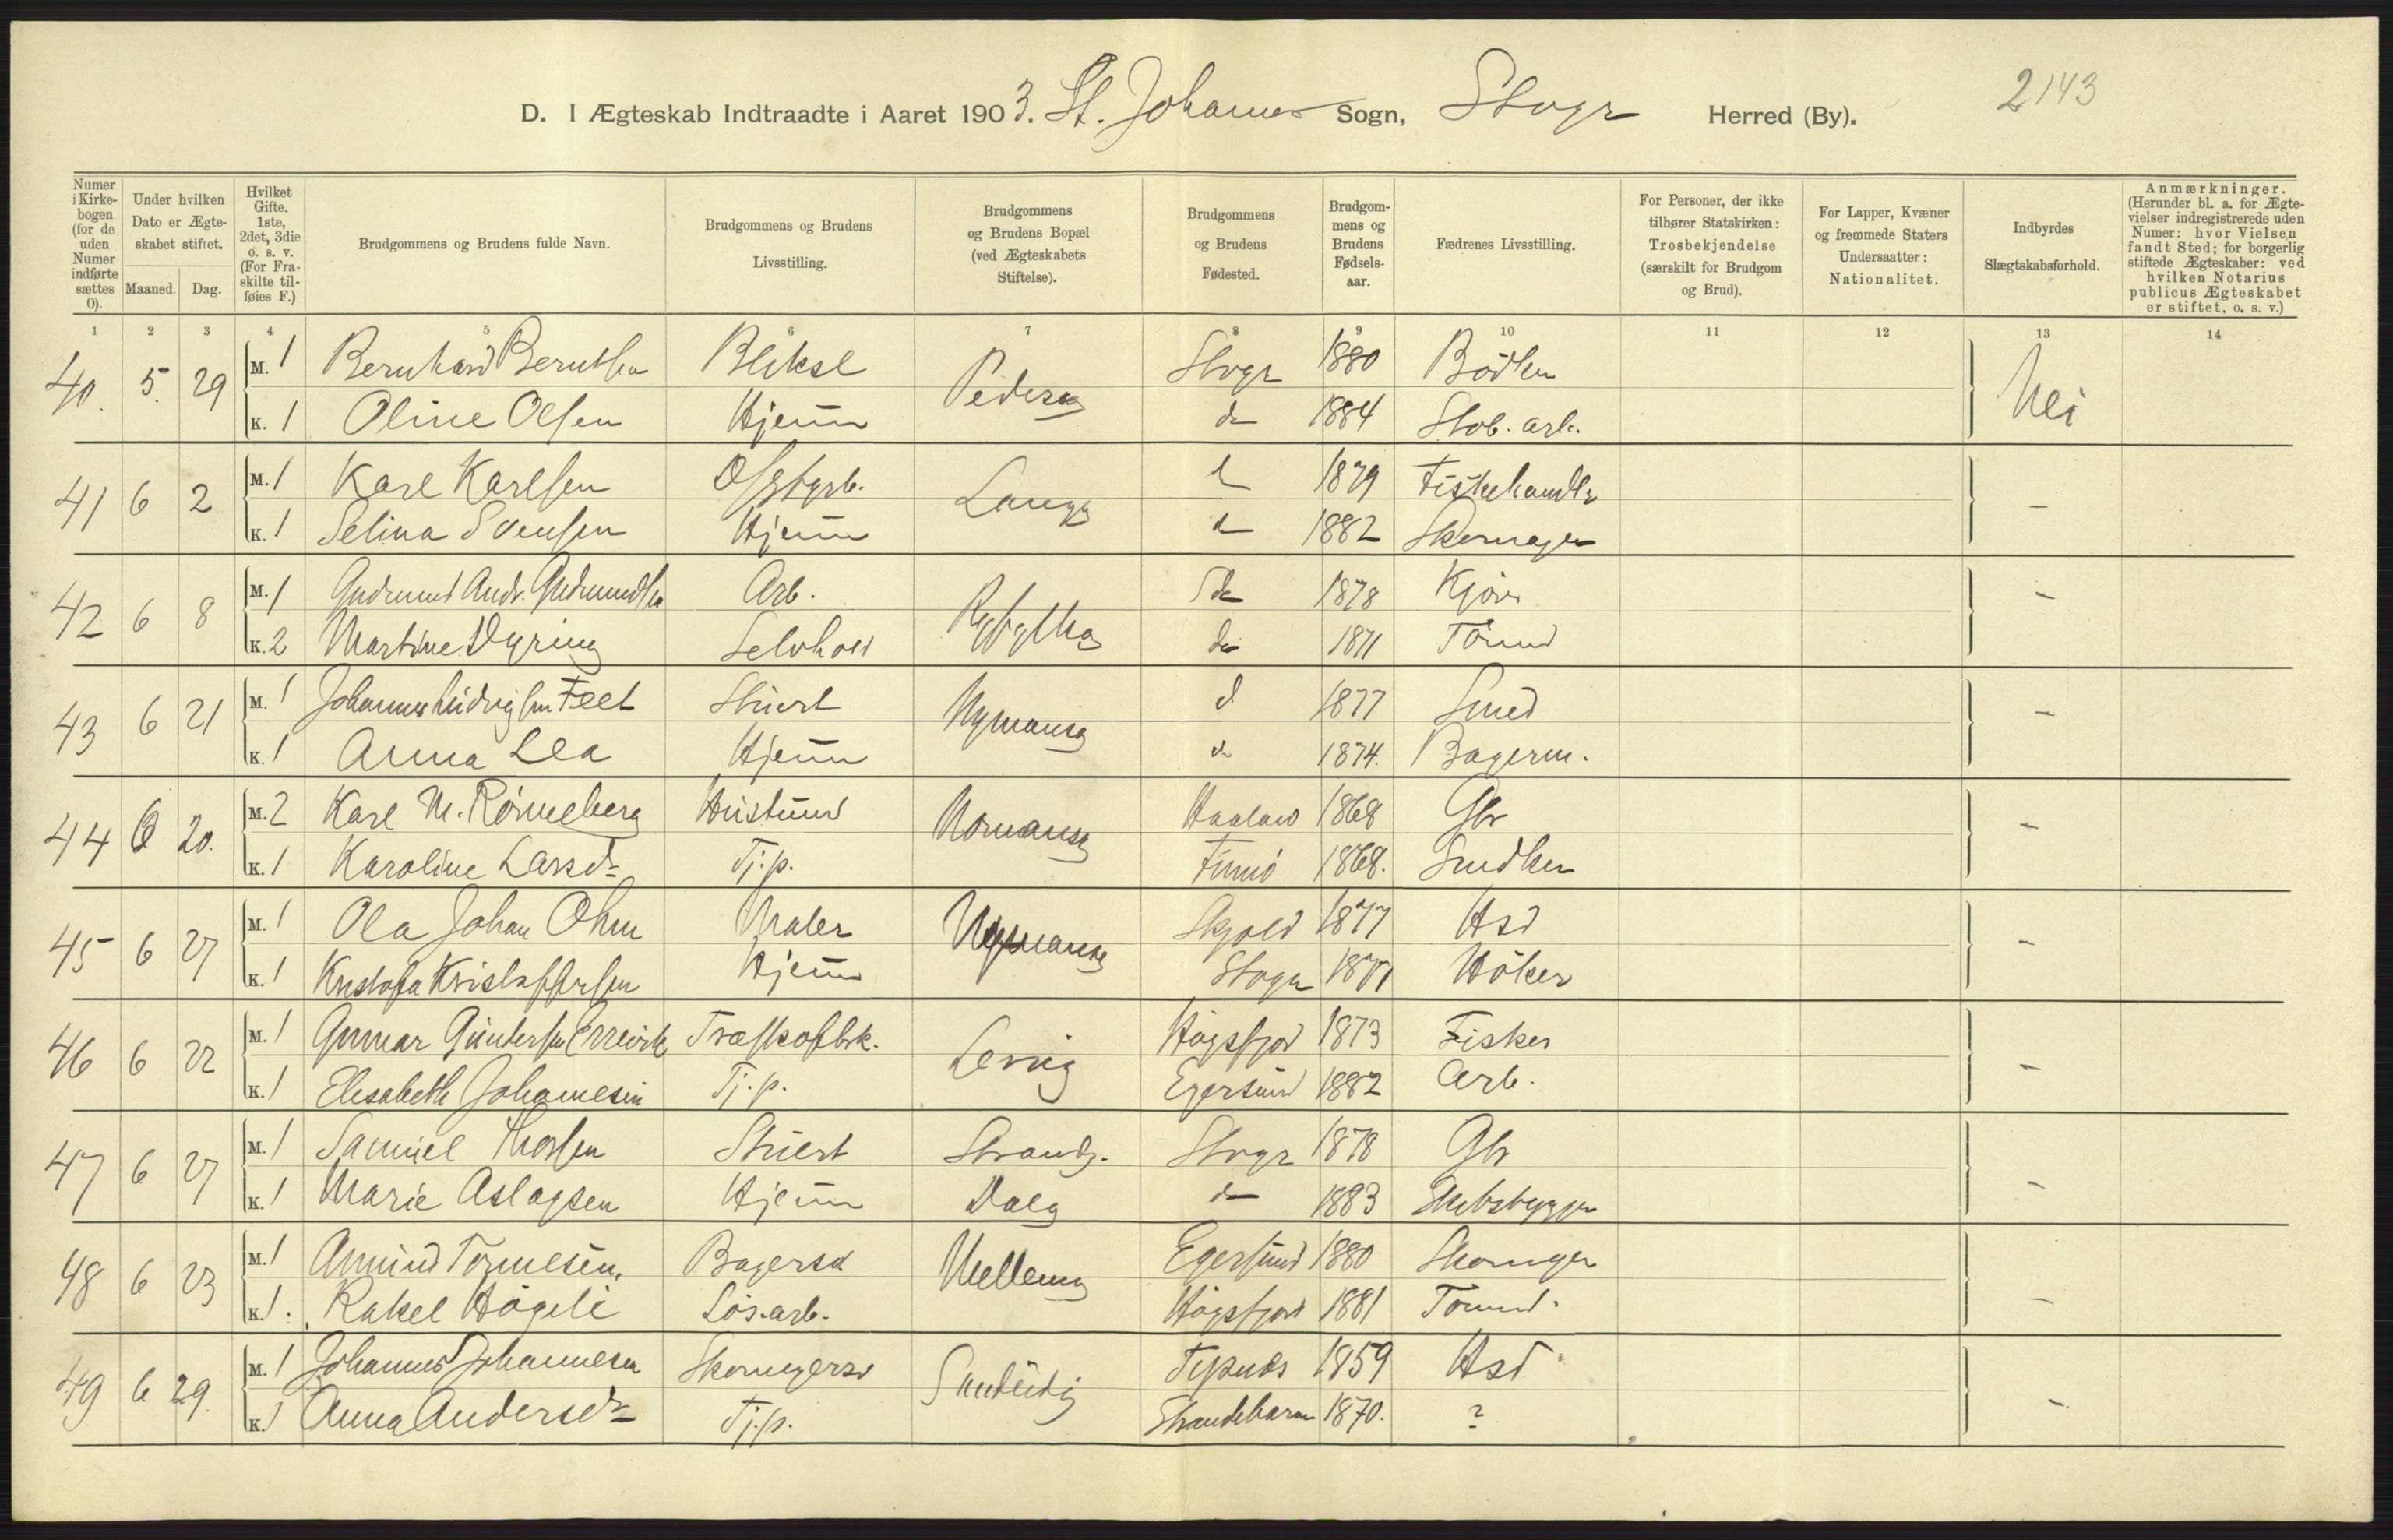 2143
D. I Ægteskab Indtraadte i Aaret 1903. St. Johannes Sogn, Stvgr Herred (By).
Numer i Kirkebogen (for de uden Numer indførte sættes 0).
Under hvilken Dato er Ægteskabet stiftet.
Maaned. Dag.
Hvilket Gifte. 1ste, 2det, 3die o. s. v. (For Fraskilte tilføies F.)
Brudgommens og Brudens fulde Navn.
Brudgommens og Brudens Livsstilling.
Brudgommens og Brudens Bopæl (ved Ægteskabets Stiftelse).
Brudgommens og Brudens Fødested.
Brudgommens og Brudens Fødselsaar.
Fædrenes Livsstilling.
For Personer, der ikke tilhører Statskirken: Trosbekjendelse (særskilt for Brudgom og Brud).
For Lapper, Kvæner og fremmede Staters Undersaatter: Nationalitet.
Indbyrdes Slægtskabsforhold.
Anmærkninger. (Herunder bl. a. for Ægtevielser indregistrerede uden Numer: hvor Vielsen fandt Sted; for borgerlig stiftede Ægteskaber: ved hvilken Notarius publicus Ægteskabet er stiftet, o. s. v.)
1 2 3 4 5 6 7 8 9 10 11 12 13 14
40. 5. 29 M. 1 Bernhard Berntsen Bliksl Pedersg Stvgr 1880 Bødker Nei
K. 1 Oline Olsen Hjem d 1884 Stob. arb.
41 6 2 M. 1 Karl Karlsen Langg d 1879 Fiskehandlr -
K. 1 Selina Svensen Hjem d 1882 Skomager
42 6 8 M. 1 Gudmund Andr. Gudmundsen Arb. 1878 -
K. 2 Martine Dyring Selvhold do 1871 Tømmd
43 6 21 M. 1 Johannes Ludvigsen Feet Stuert Nymansg d 1877 Smed -
K. 1 Anna Lea Hjem d 1874. Bagerm.
44 6 20. M. 2 Karl M. Rønneberg Hustømd Haaland 1868 Gbr -
K. 1 Karoline Larsdr Tj.p. Finnø 1868. Snedker
45 6 27 M. 1 Ola Johan Ohm Maler Nymansg Skjold 1877 Hsd -
K. 1 Kristofa Kristoffersen Hjem Stvgr 1871 Høker
46 6 22 M. 1 Gunnar Gundersen Træskofbrk. Lervig Høgsfjord 1873 Fisker -
K. 1 Elisabeth Johannesen Tj.p. Egersund 1882 Arb.
47 6 27 M. 1 Samuel Thorsen Stuert Strandg. Stvgr 1878 Gbr -
K. 1 Marie Aslagsen Hjem Dalg d 1883 Skibsbygger
48 6 23 M. 1 Amund Tormesen. Bagersv Mellemg Egersund 1880 Skomager -
K. 1. Rakel Høgeli Løsarb. Høgsfjord 1881 Tømmd.
49 6 29. M. 1 Johannes Johannesen Skomagersv Tysnæs 1859 Hsd -
K. 1 Anna Andersdr Tj.p. Strandebarm 1870. ?